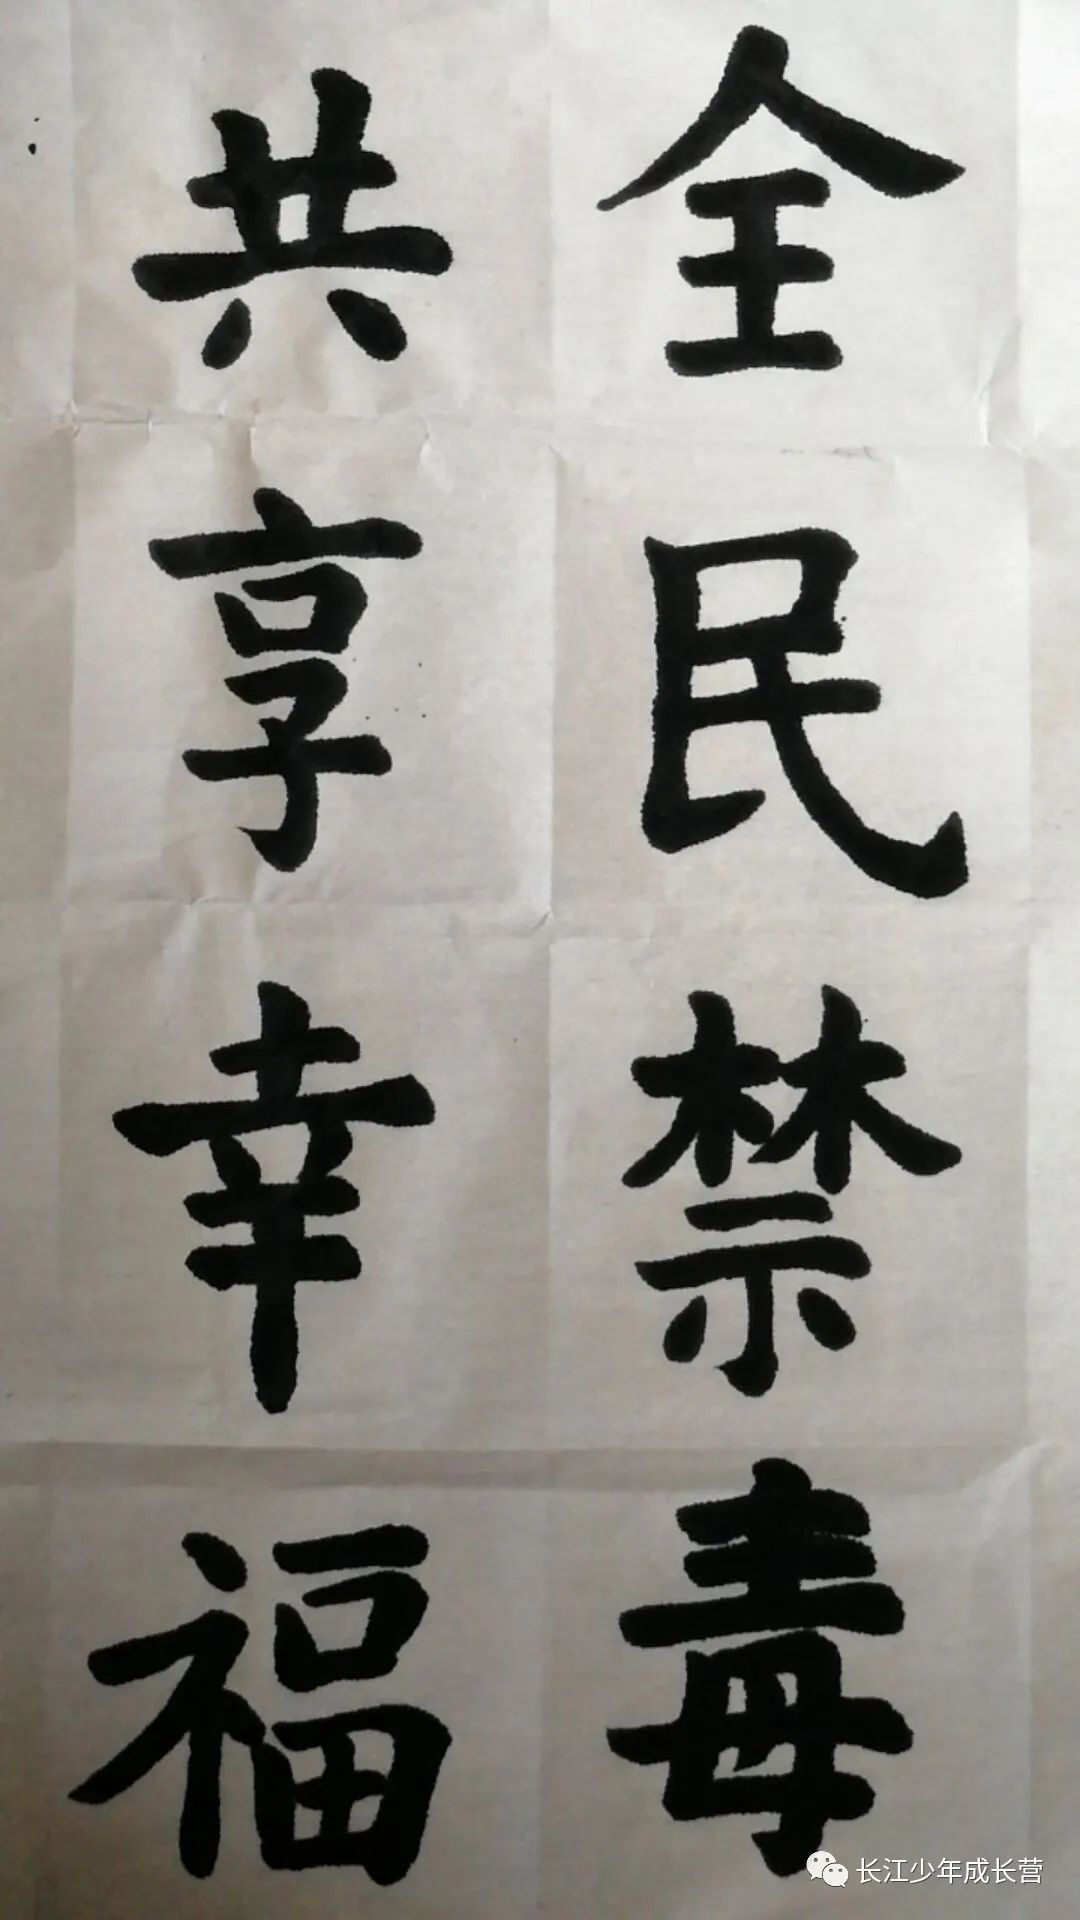 全民禁毒
共享幸福
长江少年成长营